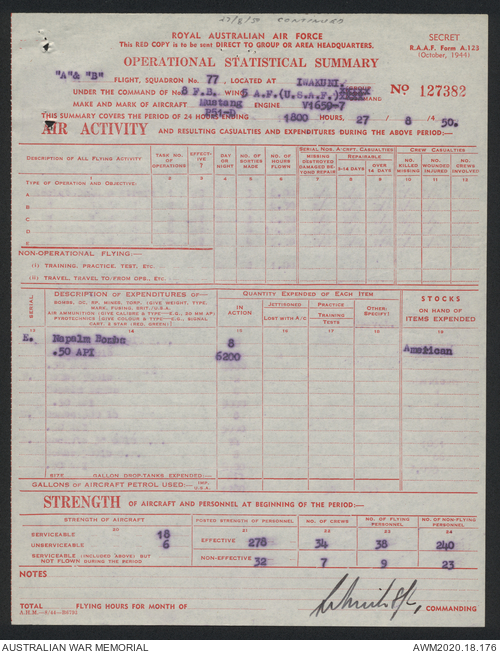 27/8/50 CONTINUED
ROYAL AUSTRALIAN AIR FORCE
This RED COPY is to be sent DIRECT TO GROUP OR AREA HEADQUARTERS.
SECRET
R.A.A.F. Form A.123
(October, 1944)
OPERATIONAL STATISTICAL SUMMARY
"A"& "B" FLIGHT, SQUADRON No. 77, LOCATED AT IWAKUNI.
UNDER THE COMMAND OF No. 8 F.B. WING 5 A.F.(U.S.A.F.) COMMAND
No 127382
MAKE AND MARK OF AIRCRAFT Mustang P51-D ENGINE V1650-7
THIS SUMMARY COVERS THE PERIOD OF 24 HOURS ENDING 1800 HOURS, 27 / 8 / 50.
AIR ACTIVITY AND RESULTING CASUALTIES AND EXPENDITURES DURING THE ABOVE PERIOD:—
DESCRIPTION OF ALL FLYING ACTIVITY
TASK NO. OF OPERATIONS
EFFECTIVE ?
DAY OR NIGHT
NO. OF SORTIES MADE
NO. OF HOURS FLOWN
SERIAL NOS. A-CRFT. CASUALTIES
MISSING DESTROYED DAMAGED BEYOND REPAIR
REPAIRABLE
OVER 14 DAYS
CREW CASUALTIES
NO. KILLED MISSING
NO. WOUNDED INJURED
NO. CREWS INVOLVED
TYPE OF OPERATION AND OBJECTIVE:
A
B
C
D
E
NON-OPERATIONAL FLYING:—
(I) TRAINING, PRACTICE, TEST, ETC.
(II) TRAVEL, TRAVEL TO/FROM OPS., ETC.
SERIAL
DESCRIPTION OF EXPENDITURES OF—
BOMBS, DC, FF, MINES, TORP. (GIVE WEIGHT, TYPE, MARK, FUSING, BRIT./U.S.A.)
AIR AMMUNITION (GIVE CALIBRE & TYPE—E.G., 20 MM AP)
PYROTECHNICS (GIVE COLOUR & TYPE—E.G., SIGNAL CART. 2 STAR (RED, GREEN))
QUANTITY EXPENDED OF EACH ITEM
IN ACTION
JETTISONED
LOST WITH A/C
PRACTICE
TRAINING
TESTS
OTHER (SPECIFY)
STOCKS
ON HAND OF ITEMS EXPENDED
E. Napalm Bombs 8 American
.50 API 6200
SIZE GALLON DROP-TANKS EXPENDED:—
GALLONS OF AIRCRAFT PETROL USED:— IMP. U.S.A.
STRENGTH OF AIRCRAFT AND PERSONNEL AT BEGINNING OF THE PERIOD:—
STRENGTH OF AIRCRAFT
POSTED STRENGTH OF PERSONNEL
NO. OF CREWS
NO. OF FLYING PERSONNEL
NO. OF NON-FLYING PERSONNEL
SERVICEABLE 18
UNSERVICEABLE 6
EFFECTIVE 278 34 38 240
SERVICEABLE (INCLUDED ABOVE) BUT NOT FLOWN DURING THE PERIOD
NON-EFFECTIVE 32 7 9 23
NOTES
TOTAL FLYING HOURS FOR MONTH OF
COMMANDING
AUSTRALIAN WAR MEMORIAL
AWM2020.18.176